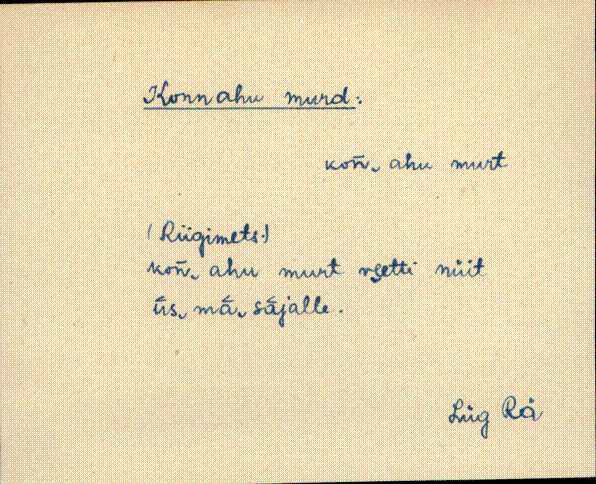 Konnahu murd:
kon̄ˬ ahu murt
(Riigimets.)
kon̄ˬ ahu murt vęetti nüit
ǖsˬ mā̆ˬ sā̆jalle.
Lüg Rå